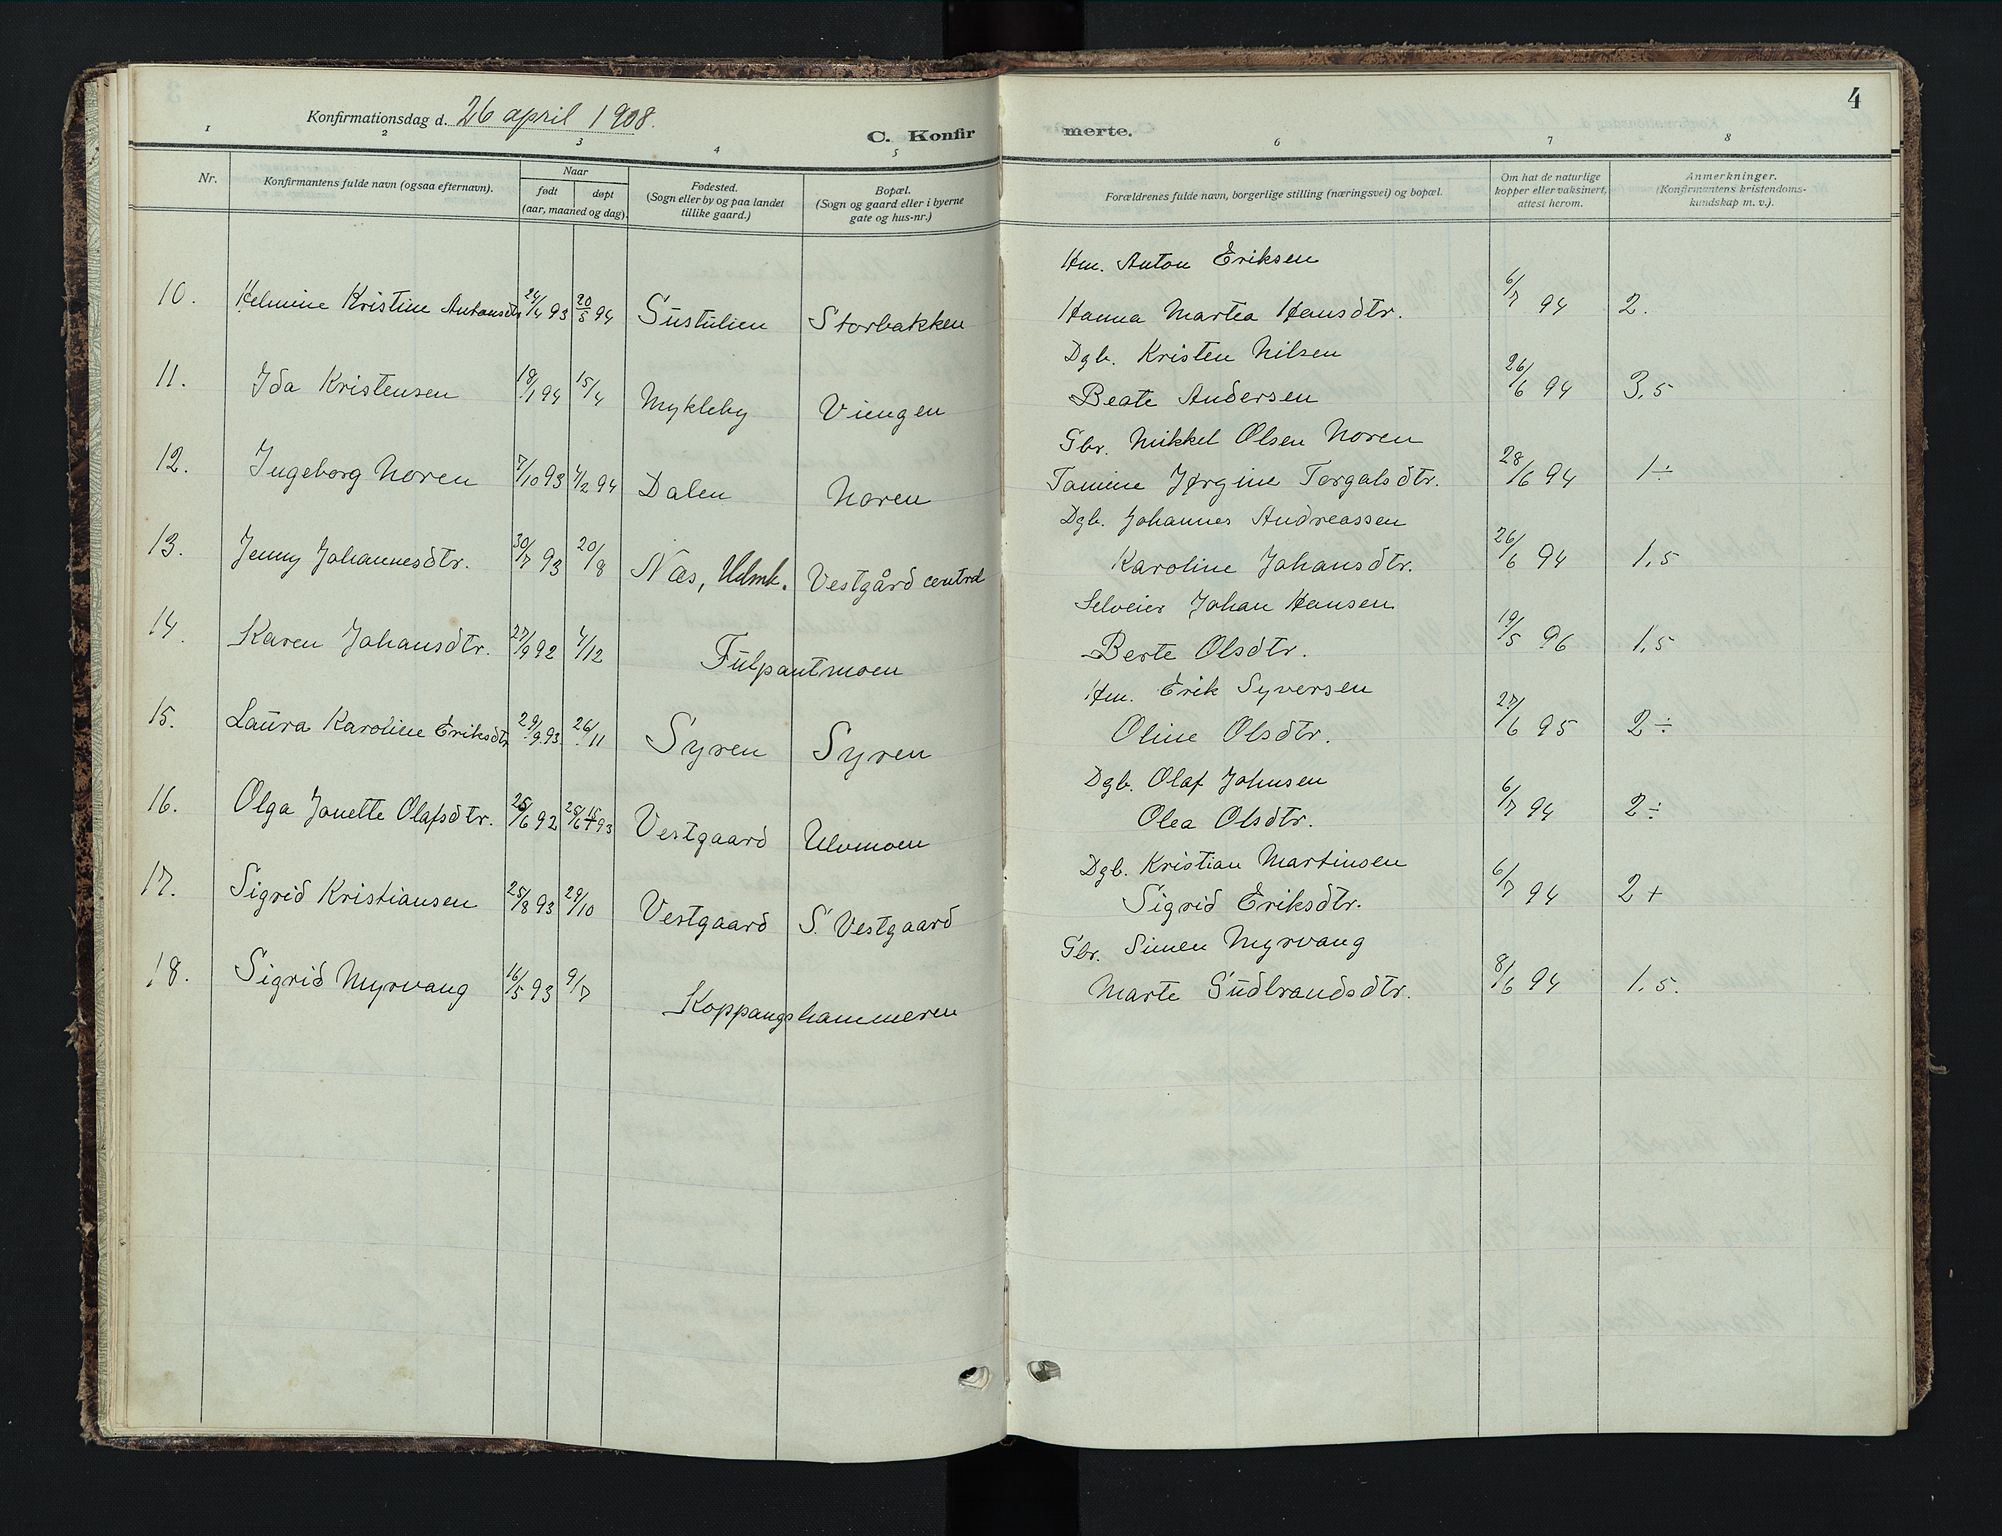 4
Konfirmationsdag d. 26 april 1908.
C. Konfirmerte.
1 2 3 4 5 6 7 8
Nr.
Konfirmantens fulde navn (ogsaa efternavn).
Naar
født døpt
(aar, maaned og dag).
Fødested.
(Sogn eller by og paa landet
tillike gaard.)
Bopæl.
(Sogn og gaard eller i byerne
gate og hus-nr.)
Forældrenes fulde navn, borgerlige stilling (næringsvei) og bopæl.
Om hat de naturlige
kopper eller vaksinert,
attest herom.
Anmerkninger.
(Konfirmantens kristendoms-
kundskap m. v.).
Hm. Anton Eriksen
10. Helmine Kristine Antonsdtr 24/4 93 20/5 94 Sustulien Storbakken Hanna Martea Hansdtr. 6/7 94 2.
Dgb. Kristen Nilsen
11. Ida Kristensen 18/1 94 15/4 Mykleby Viengen Beate Andersen 26/6 94 3,5
Gbr. Mikkel Olsen Noren
12. Ingeborg Noren 7/10 93 4/2 94 Dalen Noren Tomine Jørgine Torgalsdtr. 28/6 94 1÷
Dgb. Johannes Andreassen
13. Jenny Johannesdtr. 30/7 93 20/8 Næs, Hdmk. Vestgård central Karoline Johansdtr. 26/6 94 1,5
Selveier Johan Hansen
14. Karen Johansdtr. 27/9 92 4/12 Fulpantmoen Berte Olsdtr. 19/5 96 1,5
Hm. Erik Syversen
15. Laura Karoline Eriksdtr 29/9 93 26/11 Syren Syren Oline Olsdtr. 27/6 95 2÷
Dgb. Olaf Johnsen
16. Olga Jonette Olafsdtr. 25/6 92 93 Vestgaard Ulvmoen Olea Olsdtr. 6/7 94 2÷
Dgb. Kristian Martinsen
17. Sigrid Kristiansen 25/8 93 29/10 Vestgaard S. Vestgaard Sigrid Eriksdtr. 6/7 94 2+
Gbr. Simen Myrvang
18. Sigrid Myrvang 16/5 93 9/7 Koppangshammeren Marte Gudbrandsdtr. 8/6 94 1,5.